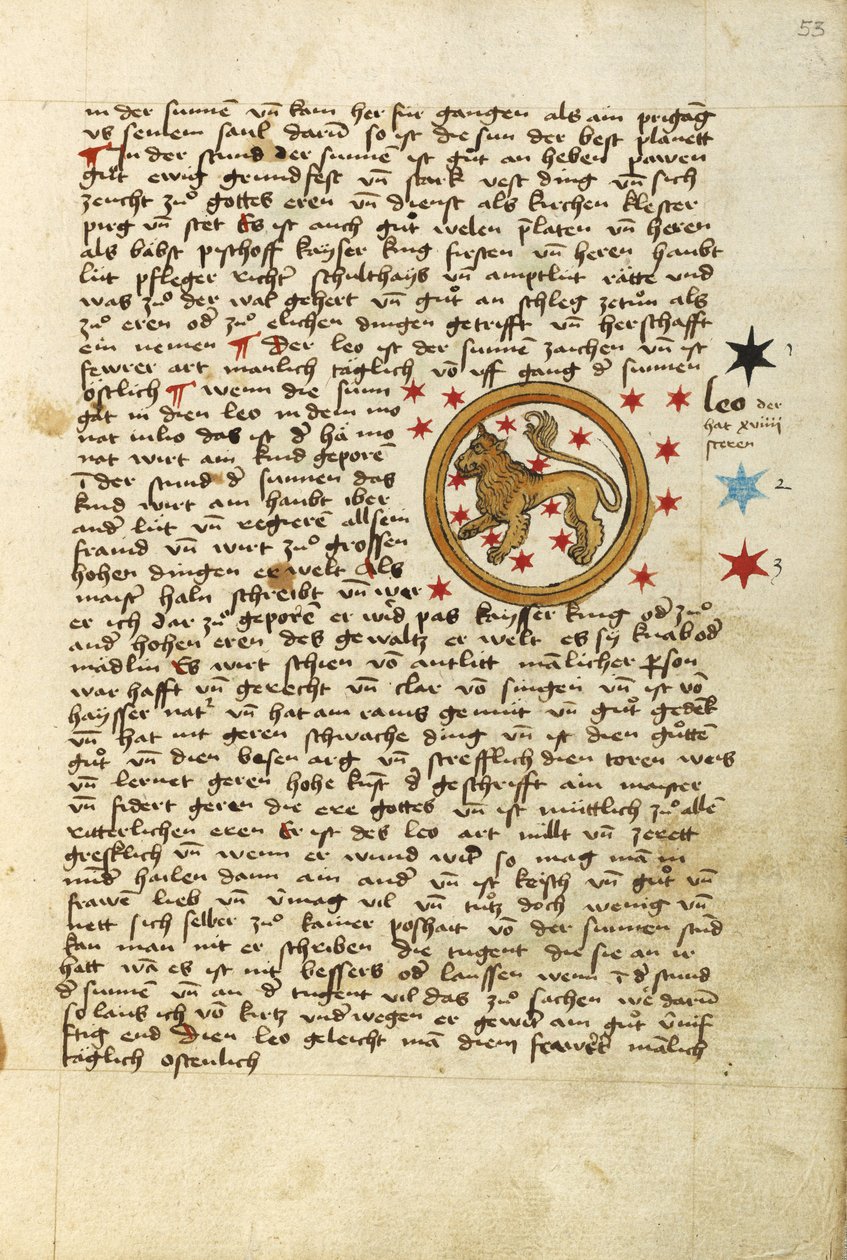 53
in der sunnē vn̄ kam her für gangen als ain prigāg
vs seinem saul darū so ist die sun der best planett
¶ In der stund der sunnē ist gůt an heben pawen
gůt ewig grundfest vn̄ stark vest ding vn̄ sich
zeucht zuͦ gottes eren vn̄ dienst als kirchen klester
pirg vn̄ stet Es ist auch gůt welen p̄laten vn̄ heren
als bābst pischoff kayser king firsten vn̄ heren haubt
lüt pfleger richter̄ schulthays vn̄ amptlüt rätte vnd
was zuͦ der wal gehert vn̄ gůt an schleg zetůn als
zuͦ eren od̄ zuͦ elichen dingen getrifft vn̄ herschafft
ein nemen ¶ Der leo ist der sunnen zaichen vn̄ ist
fewrer art manlich täglich vō vff gang d̄ sunnen
östlich ¶ wenn die sunn
gāt in dien leo in dem mo
nat iulio das ist d̄ hä mo
nat wirt ain kind geporē
ī der stund d̄ sunnen das
kind wirt ain haubt iber
ander̄ lüt vn̄ regierē all sein
fraind vn̄ wirt zuͦ grossen
hohen dingen er welt Als
maist̄ haln schreibt vn̄ wer
leo der
hat xviiii
steren
1
2
3
er ich dar zuͦ geporē er wird pas kaysser king oder̄ zuͦ
ander̄ hohen eren des gewaltz er welt es sÿ knab od̄
mädlin Es wirt schien vō antlitt mālicher p̄son
warhafft vn̄ gerecht vn̄ clar vō singen vn̄ ist vō
haysser natr vn̄ hat ain rains gemüt vn̄ gůt gedēk
vn̄ hat nit geren schwache ding vn̄ ist dien gůttē
gůt vn̄ dien besen arg vn̄ strefflich dien toren weis
vn̄ lernet geren hohe kūst d̄ geschrifft ain maister
vn̄ fidert geren die ere gottes vn̄ ist müttlich zuͦ allē
ritterlichen eren Er ist des leo art vn̄ zerett
gresklich vn̄ wenn er wund wirt so mag mā in
mīder̄ hailen dann ain ander̄ vn̄ ist keisch vn̄ gůt vn̄
frawē lieb vn̄ v̄mag vil vn̄ tůtz doch wenig vn̄
nett sich selber zuͦ kainer poshait vō der sunnen stūd
kan man nit er schriben die tugent die sie an ir
hatt wā es ist nit bessers od̄ laussen wenn ī d̄ stund
d̄ sunnen vn̄ an d̄ tugent vil das zuͦ sachen wē darū
so laus ich vō kirtz vnderwegen er gewīt ain gůt v̄nif
ftig end Dien leo geleicht mā diem fewr̄ mālich
täglich ostenlich